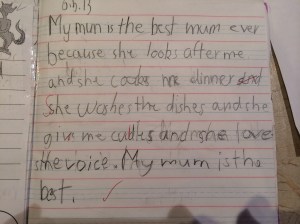 6.3.13
My mum is the best mum ever
because she looks after me
and she cooks me dinner and
she washes the dishes and she
give me cuddles and she love
the voice. My mum is the
best.